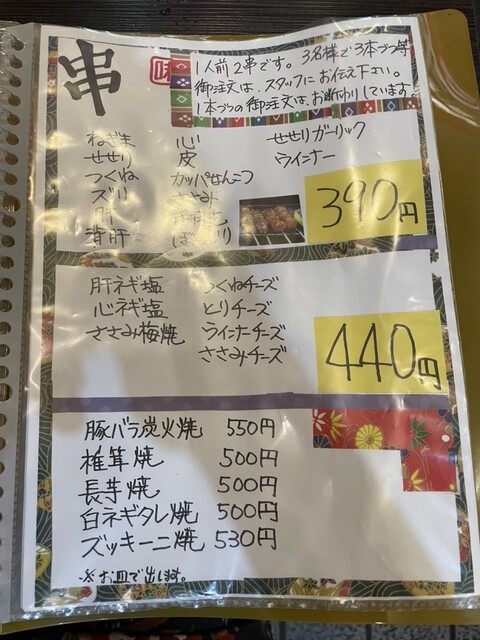 串
味
1人前2串です。3名様で3本づつ等
御注文は、スタッフにお伝え下さい。
1本づつの御注文は、お断わりしています。
ねぎま 心 せせりガーリック
せせり 皮 ウインナー
つくね カッパなんこつ
ズリ ささみ
肝
背肝
390円
肝ネギ塩 つくねチーズ
心ネギ塩 とりチーズ
ささみ梅焼 ウインナーチーズ
ささみチーズ
440円
豚バラ炭火焼 550円
椎茸焼 500円
長芋焼 500円
白ネギタレ焼 500円
ズッキーニ焼 530円
※お皿で出します。